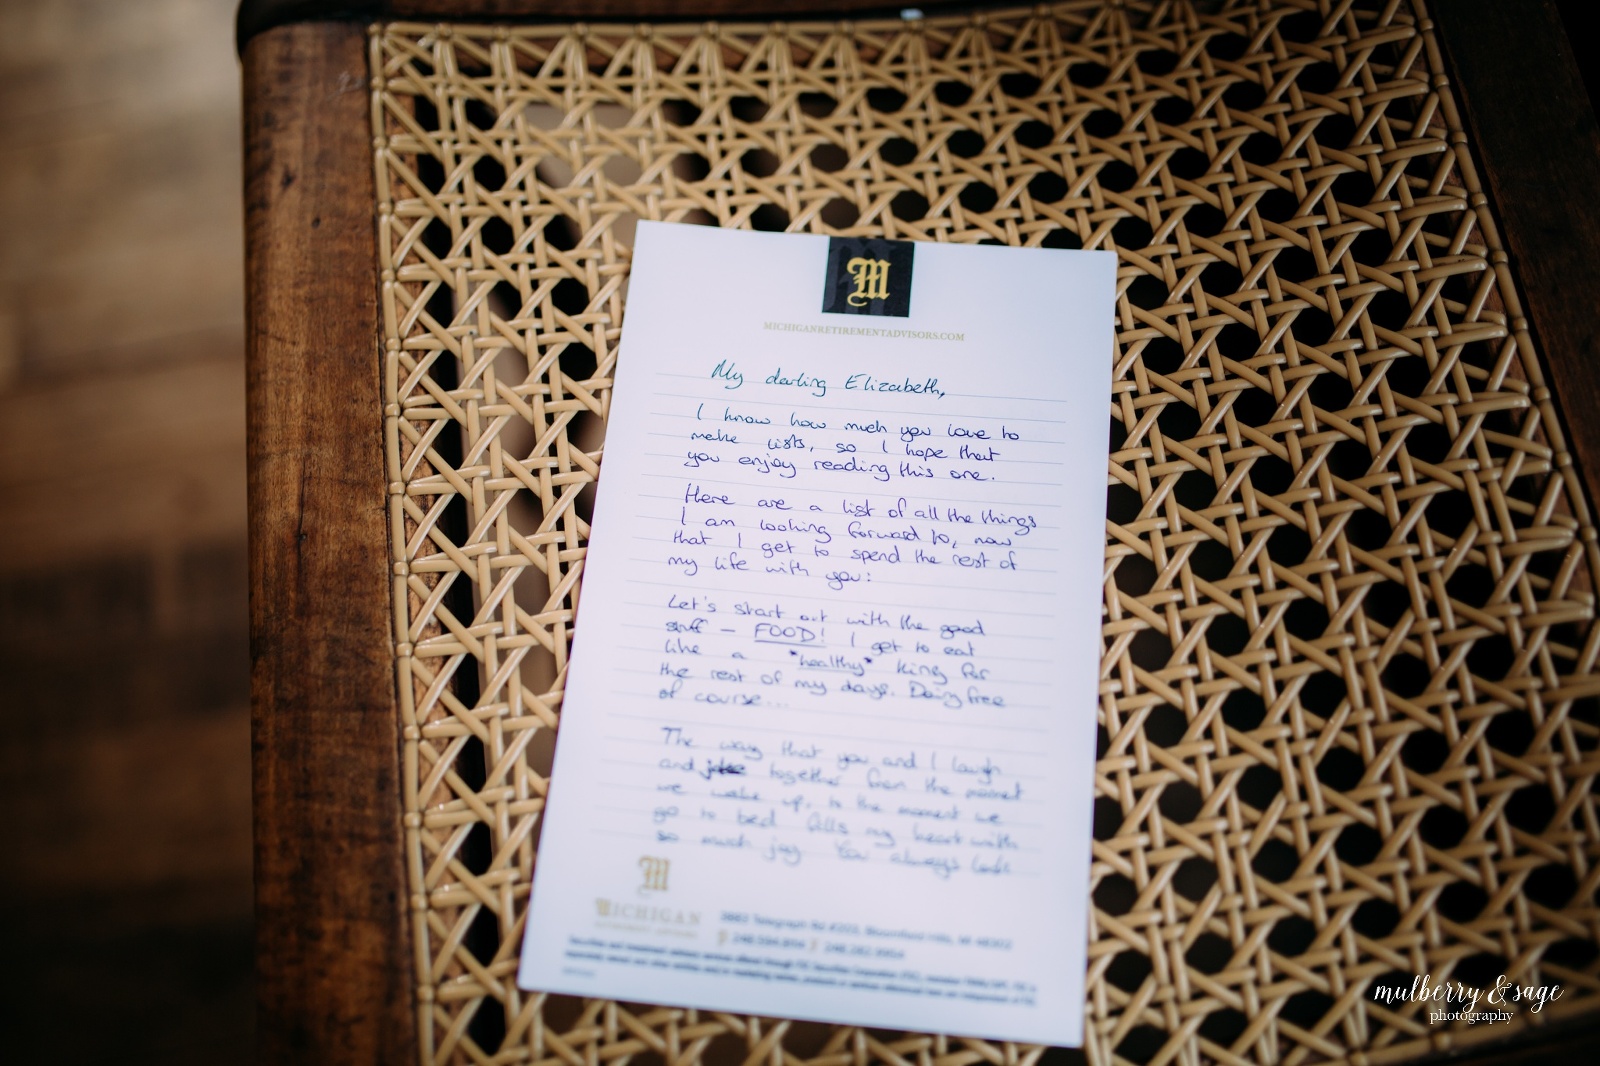 M
MICHIGANRETIREMENTADVISORS.COM
My darling Elizabeth,
I know how much you love to
make lists, so I hope that
you enjoy reading this one.
Here are a list of all the things
I am looking forward to, now
that I get to spend the rest of
my life with you:
Let's start out with the good
stuff – FOOD! I get to eat
like a *healthy* king for
the rest of my days. Dairy free
of course...
The way that you and I laugh
and together from the moment
we wake up, to the moment we
go to bed fills my heart with
so much joy You always look
M
MICHIGAN
Telegraph Rd #203, Bloomfield Hills, MI 48302
mulberry & sage
photography